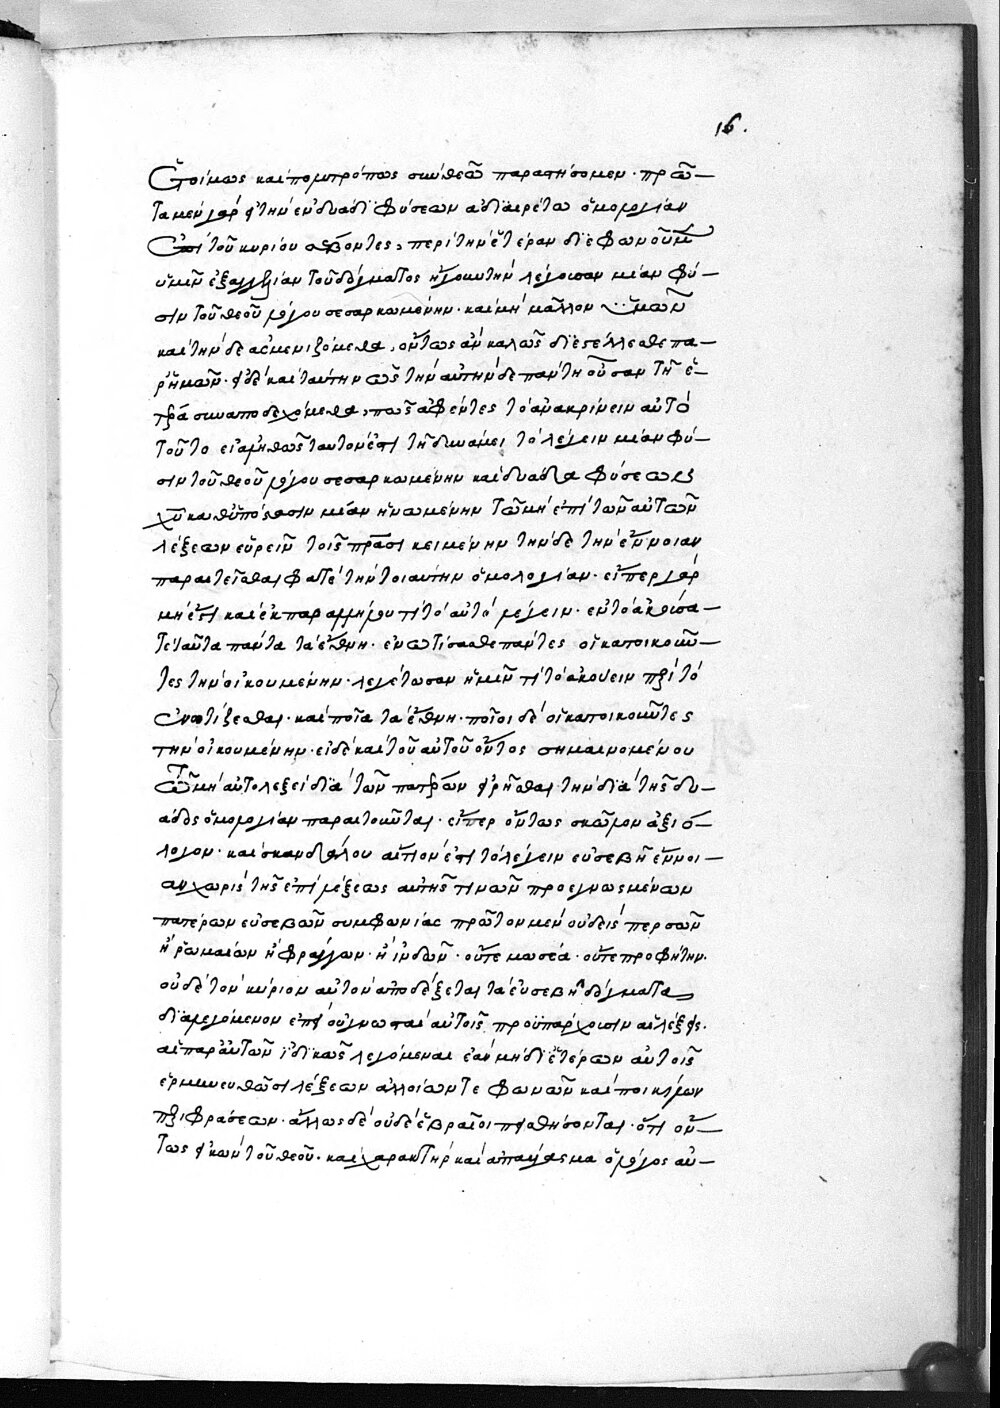 16.
Ἑτοίμως καὶ πολυτρόπως σὺν θεῶ παραστήσομεν · πρῶ-
τα μὲν γὰρ τὴν ἐν δυάδι φύσεων ἀδιαιρέτω ὁμολογίαν
ἐπὶ τοῦ κυρίου σέβοντες, περὶ τὴν ἑτέραν διεφωνοῦμεν
ὑμῖν ἐξαλλαγὴν τοῦ δόγματος ἤγουν τὴν λέγουσαν μίαν φύ-
σιν τοῦ θεοῦ λόγου σεσαρκωμένην · καὶ μὴ μᾶλλον ὑμῶν
καὶ τήνδε ἀσμενιζόμεθα, οὕτως ἂν καλῶς διεστέλλεσθε πα-
ρ' ἡμῶν · εἰ δὲ καὶ ταύτην ὡς τὴν αὐτήνδε πάντη οὖσαν τῆ ἑ-
τέρα συναποδεχόμεθα, πῶς ἀφέντες τὸ ἀνακρίνειν αὐτὸ
τοῦτο εἰ ἀληθῶς ταυτόν ἐστι τῆ δυνάμει τὸ λέγειν μίαν φύ-
σιν τοῦ θεοῦ λόγου σεσαρκωμένην καὶ δυάδα φύσεων
χῦ καθ' ὑπόστασιν μίαν ἡνωμένην τῶ μὴ ἐπὶ τῶν αὐτῶν
λέξεων εὑρεῖν τοῖς πράσι κειμένην τήνδε τὴν ἔννοιαν
παραιτεῖσθαι φατὲ τὴν τοιαύτην ὁμολογίαν · εἴπερ γὰρ
μὴ ἔστι καὶ ἐκ παραλλήλου τί τὸ αὐτὸ λέγειν · ἐν τῶ ἀκούσα-
τε ταῦτα πάντα τὰ ἔθνη · ἐνωτίσασθε πάντες οἱ κατοικοῦν-
τες τὴν οἰκουμένην · λεγέτωσαν ἡμῖν τί τὸ ἀκούειν παρὰ τὸ
ἐνωτίζεσθαι · καὶ ποῖα τὰ ἔθνη · ποῖοι δὲ οἱ κατοικοῦντες
τὴν οἰκουμένην · εἰ δὲ καὶ τοῦ αὐτοῦ ὄντος σημαινομένου
τῶ μὴ αὐτολεξεὶ διὰ τῶν πατέρων εἰρῆσθαι τὴν διὰ τῆς δυ-
άδος ὁμολογίαν παραιτοῦνται · εἴπερ ὄντως σκῶμμα ἀξιό-
λογον · καὶ σκανδάλου αἴτιόν ἐστι τὸ λέγειν εὐσεβῆ ἔννοι-
αν χωρὶς τῆς ἐπιλέξεως αὐτῆς τινῶν προεγνωσμένων
πατέρων εὐσεβῶν συμφωνίας πρῶτον μὲν οὐδεὶς περσῶν
ἢ ῥωμαίων ἢ φράγγων · ἢ ἰνδῶν · οὔτε μωσέα · οὔτε προφήτην ·
οὐδὲ τὸν κύριον αὐτὸν ἀποδέξεται τὰ εὐσεβῆ δόγματα
διαλεγόμενον ἐπεὶ οὐ γνωσταὶ αὐτοῖς προϋπάρχουσιν αἱ λέξεις ·
αἱ παρ' αὐτῶν ἰδικῶς λεγόμεναι ἐὰν μὴ δι' ἑτέρων αὐτοῖς
ἑρμηνευθῶσι λέξεων ἀλλοίων τε φωνῶν καὶ ποικίλων
περιφράσεων · ἄλλως δὲ οὐδὲ ἑβραῖοι πεισθήσονται · ὅτι ὄν-
τως εἰκὼν τοῦ θεοῦ · καὶ χαρακτὴρ καὶ ἀπαύγασμα ὁ λόγος αὐ-